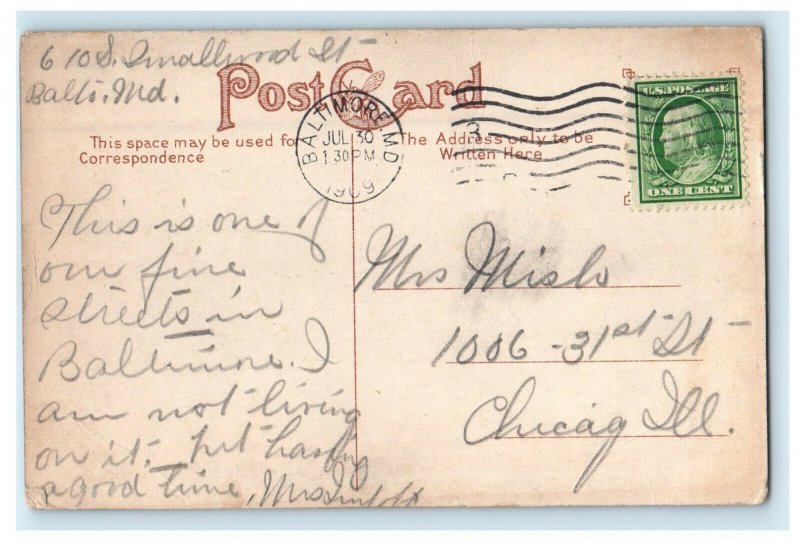 610 S. Smallwood St
Balto. Md.
Post Card
This space may be used for
Correspondence
The Address only to be
Written Here
BALTIMORE, MD
JUL 30
1 30 PM
1909
3
U.S. POSTAGE
ONE CENT
This is one of
our fine
streets in
Baltimore. I
am not living
on it, but having
a good time, Mrs
Mrs Mislo
1006 - 31st St
Chicag Ill.